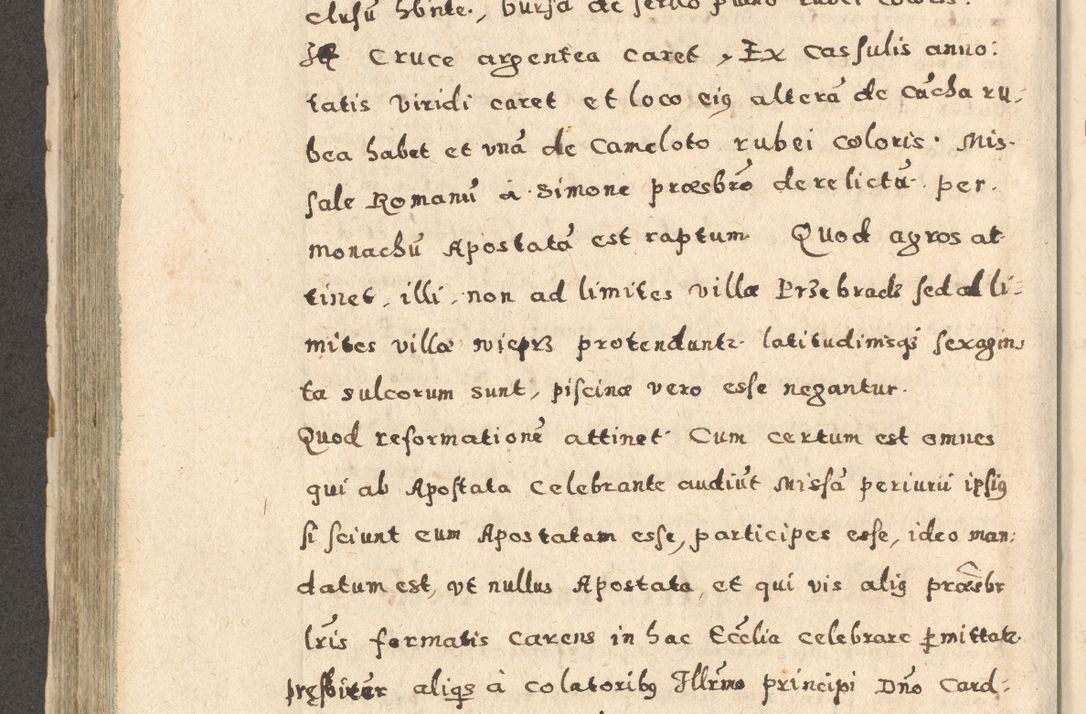 clusū hbnte, bursa de serico plano rubei coloris.
Itē Cruce argentea caret, Ex cassulis anno:
tatis viridi caret et loco eiꝯ alterā de cācha ru-
bea habet et vnā de Cameloto rubei coloris. Mis-
sale Romanū à Simone præsbrō derelictū per
monachū Apostatā est raptum Quod agros at
tinet, illi, non ad limites villæ Przebrads sed ad li-
mites villæ Wieprz protendunts latitudinisqȝ sexagin
ta sulcorum sunt, piscinæ vero esse negantur.
Quod reformationē attinet Cum certum est omnes
qui ab Apostata celebrante audiūt Missā periurii ipsiꝯ
si sciunt eum Apostatam esse, participes esse, ideo man:
datum est, vt nullus Apostata, et qui vis aliꝯ præsbr
lrīs formatis carens in hac Eccl̄ia celebrare ꝑmittatr
præsbiter aliqs à colatoribꝯ Illrmo principi Dn̄o Card-